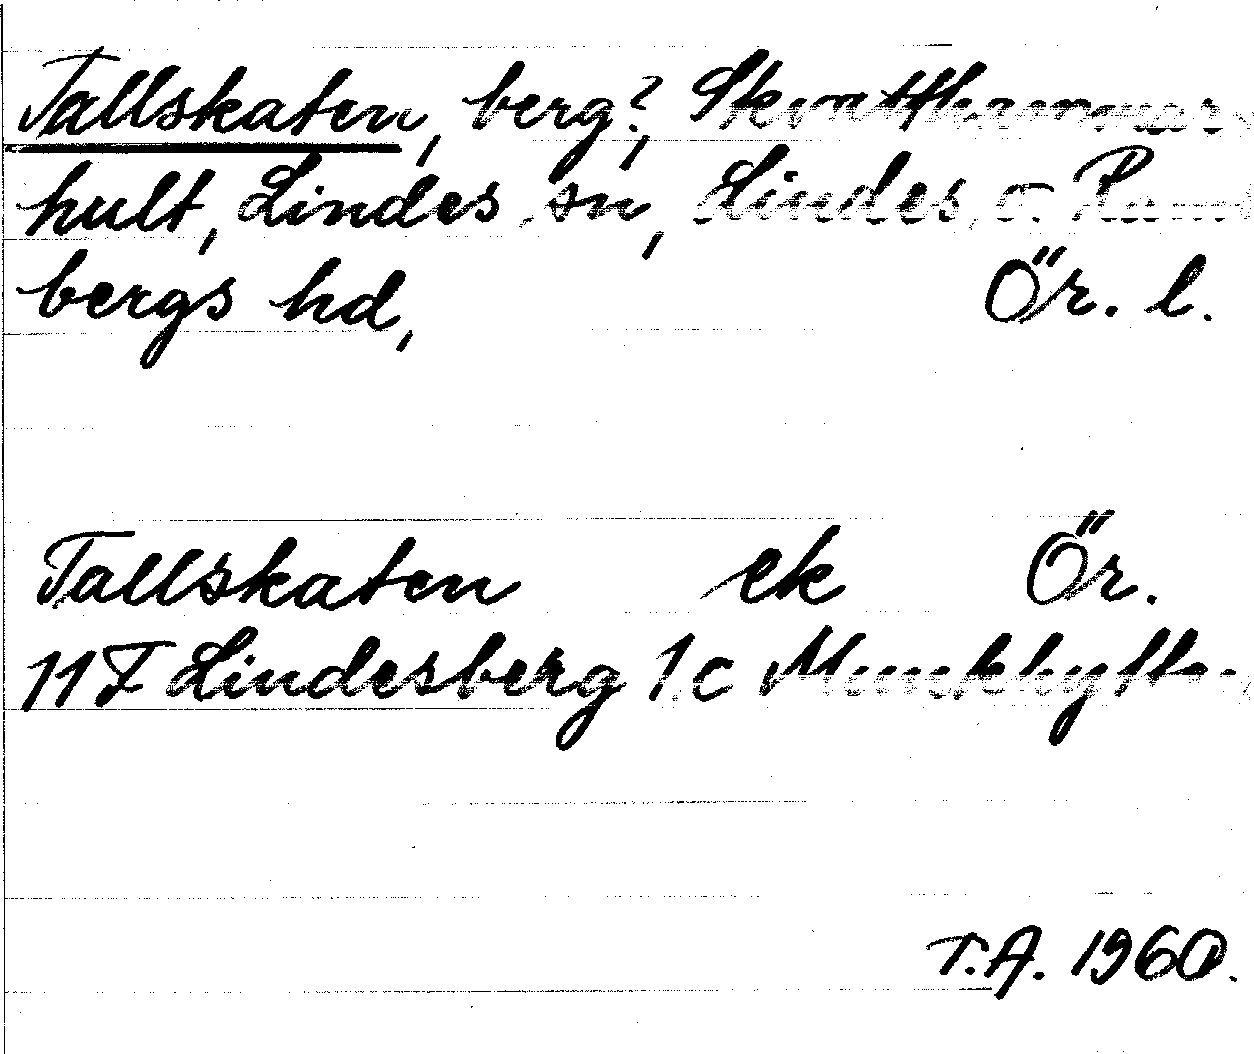 Tallskaten, berg?, Skotthammar-
hult, Lindes sn, Lindes o. Ram-
bergs hd, Ör. l.
Tallskaten ek Ör.
11F Lindesberg 1 c Munkhyttan
T.A. 1960.